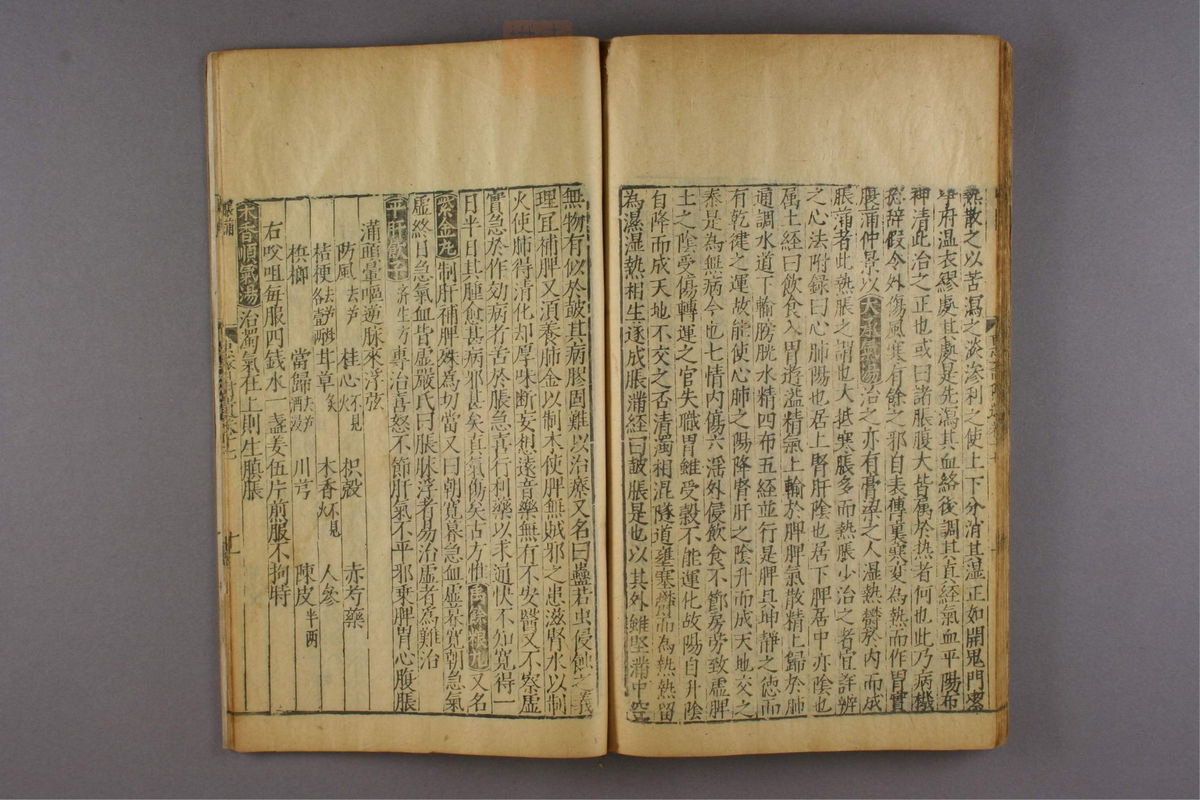 熱散之以苦瀉之淡滲利之使上下分消其湿正如開鬼門潔
净府温衣繆處其處是先瀉其血絡後調其真経氣血平陽布
神清此治之正也或曰諸脹腹大皆属於热者何也此乃病機
総辞假令外傷風寒有餘之邪自表傳裏寒变為熱而作胃實
腹满仲景以大承氣湯治之亦有膏粱之人湿熱欝於内而成
脹满者此熱脹之謂也大抵寒脹多而熱脹少治之者宜詳辨
之心法附録曰心肺陽也居上腎肝陰也居下脾居中亦陰也
属土経曰飲食入胃遊溢精氣上輸於脾脾氣散精上歸於肺
通調水道下輸膀胱水精四布五經並行是脾具坤静之德而
有乾健之運故能使心肺之陽降腎肝之陰升而成天地交之
泰是為無病今也七情内傷六淫外侵飲食不節房劳致虚脾
土之陰受傷轉運之官失職胃雖受穀不能運化故陽自升陰
自降而成天地不交之否清濁相混隧道壅塞欝而為熱熱留
為濕湿熱相生遂成脹滿経曰皷脹是也以其外雖堅滿中空
無物有似於皷其病膠固難以治療又名曰蠱若虫侵蝕之義
理宜補脾又須養肺金以制木使脾無賊邪之患滋腎水以制
火使肺得清化却厚味断妄想遠音樂無有不安醫又不察虚
實急於作効病者苦於脹急喜行利藥以求通快不知寛得一
日半日其腫愈甚病邪甚矣真氣傷矣古方惟禹餘粮丸又名
紫金丸制肝補脾殊為切當又曰朝寛暮急血虚暮寛朝急氣
虚終日急氣血皆虚嚴氏曰脹脉浮者易治虚者為難治
平肝飲子済生方專治喜怒不節肝氣不平邪乗脾胃心腹脹
满頭暈嘔逆脉來浮弦
防風去芦 桂心不見火 枳殼 赤芍藥
桔梗去芦炒各壹両 甘草炙 木香不見火 人參
梹榔 當歸去芦酒浸 川芎 陳皮半两
右㕮咀每服四錢水一盞姜伍片煎服不拘時
木香順氣湯治濁氣在上則生䐜脹
脹满